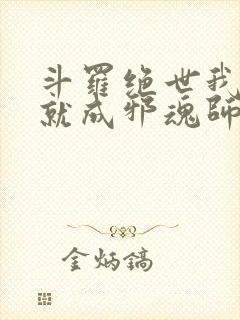 斗羅绝世我
就成邪魂師
金炳鎬